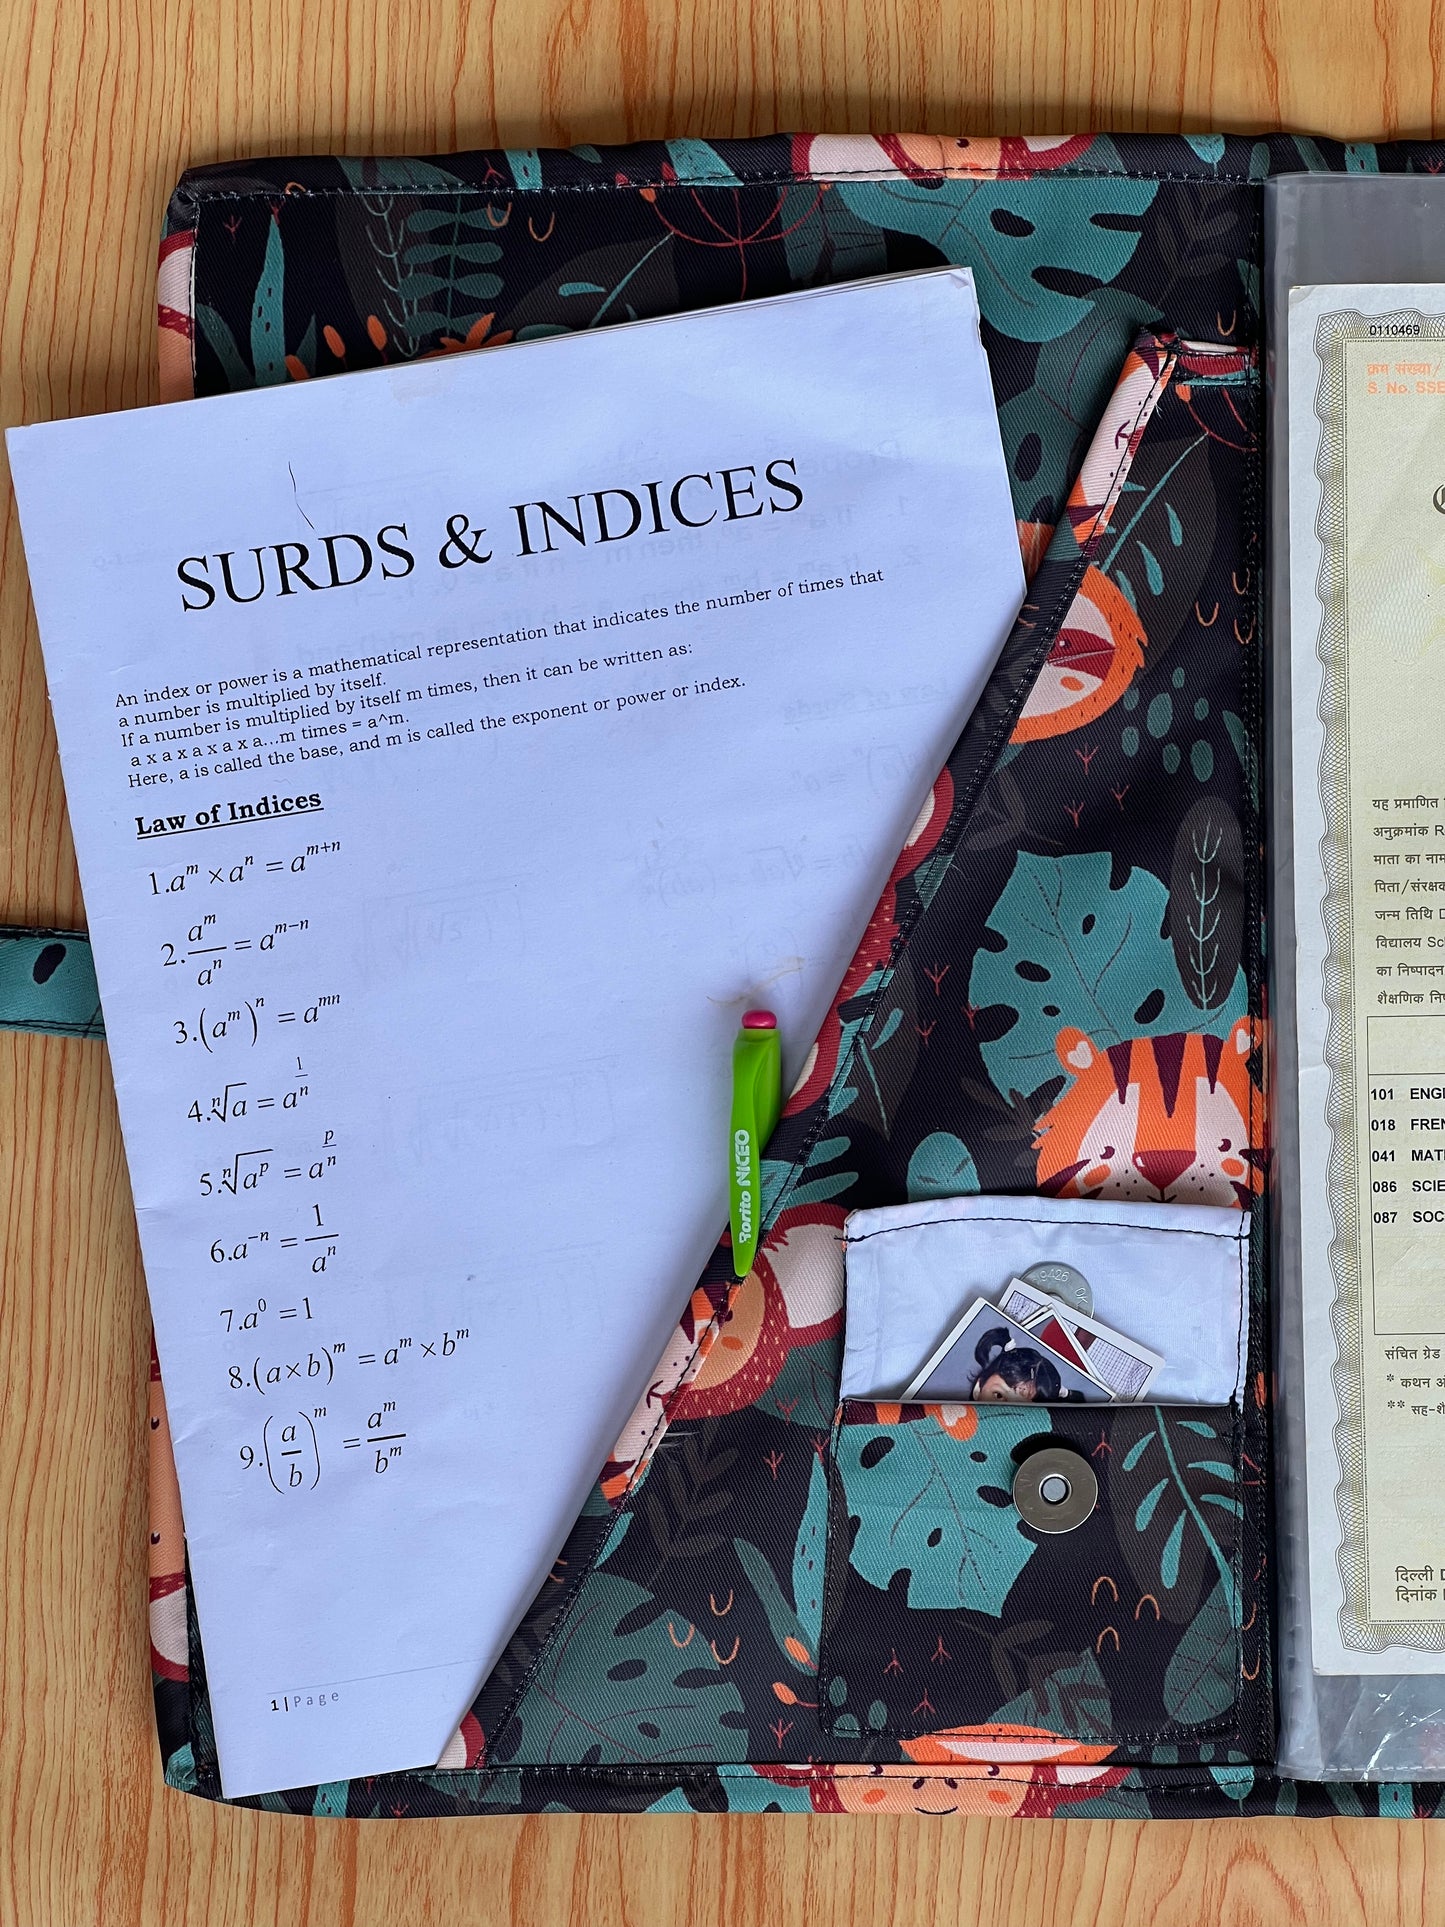 SURDS & INDICES
An index or power is a mathematical representation that indicates the number of times that
a number is multiplied by itself.
If a number is multiplied by itself m times, then it can be written as:
a x a x a x a x a...m times = a^m.
Here, a is called the base, and m is called the exponent or power or index.
Law of Indices
1.a^m × a^n = a^{m+n}
2.\frac{a^m}{a^n} = a^{m-n}
3.(a^m)^n = a^{mn}
4.\sqrt[n]{a} = a^{\frac{1}{n}}
5.\sqrt[n]{a^p} = a^{\frac{p}{n}}
6.a^{-n} = \frac{1}{a^n}
7.a^0 = 1
8.(a×b)^m = a^m × b^m
9.(\frac{a}{b})^m = \frac{a^m}{b^m}
1 | Page
NICEO
0110469
क्रम संख्या/
S. No. SSE
यह प्रमाणित
अनुक्रमांक R
माता का नाम
पिता/संरक्षक
जन्म तिथि D
विद्यालय Sc
का निष्पादन
शैक्षणिक
101 ENGL
018 FREN
041 MAT
086 SCIE
087 SOC
संचित ग्रेड
* कथन
** सह-शै
दिल्ली D
दिनांक